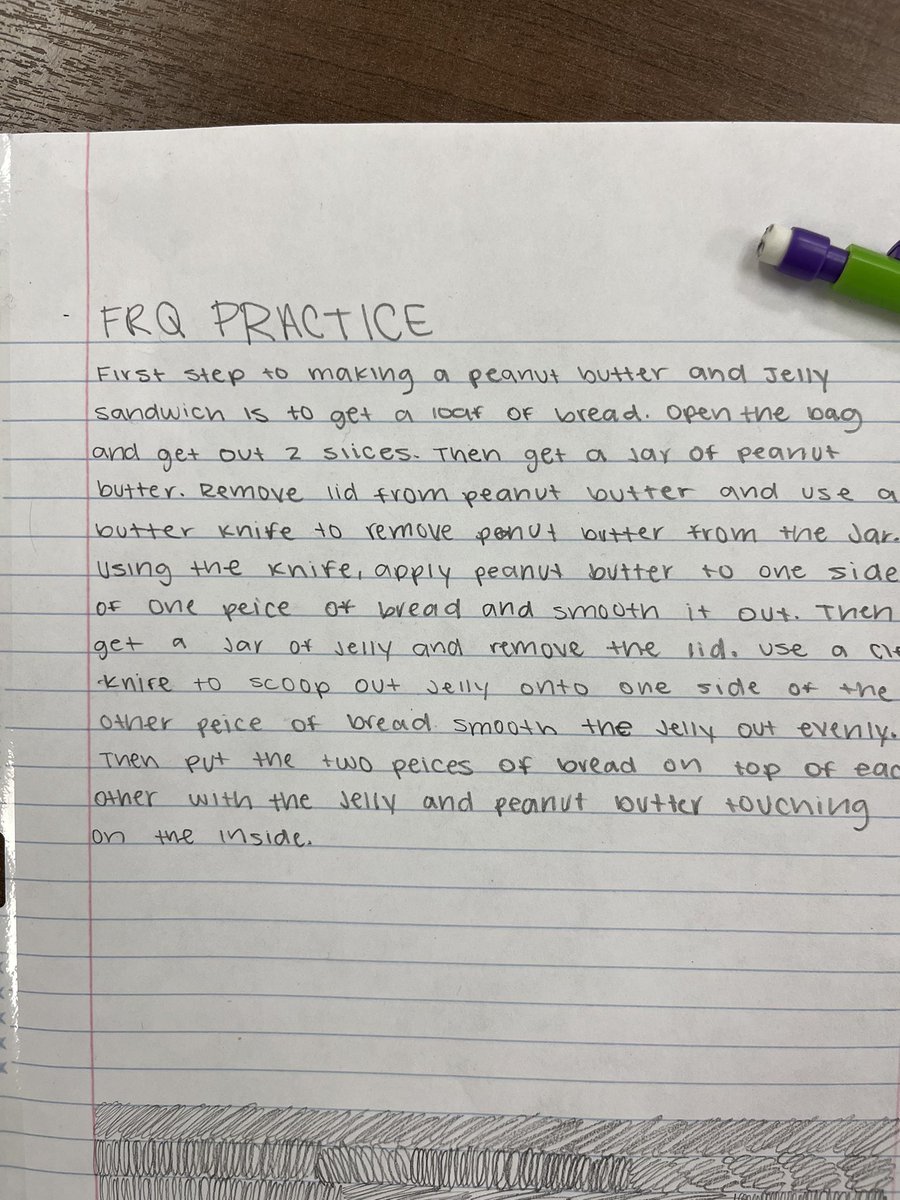 FRQ PRACTICE
First step to making a peanut butter and Jelly
sandwich is to get a loaf of bread. Open the bag
and get out 2 slices. Then get a Jar of peanut
butter. Remove lid from peanut butter and use a
butter knife to remove penut butter from the Jar.
Using the knife, apply peanut butter to one side
of one peice of bread and smooth it out. Then
get a Jar of Jelly and remove the lid. Use a
knife to scoop out Jelly onto one side of the
other peice of bread. smooth the Jelly out evenly.
Then put the two peices of bread on top of eac
other with the Jelly and peanut butter touching
on the inside.